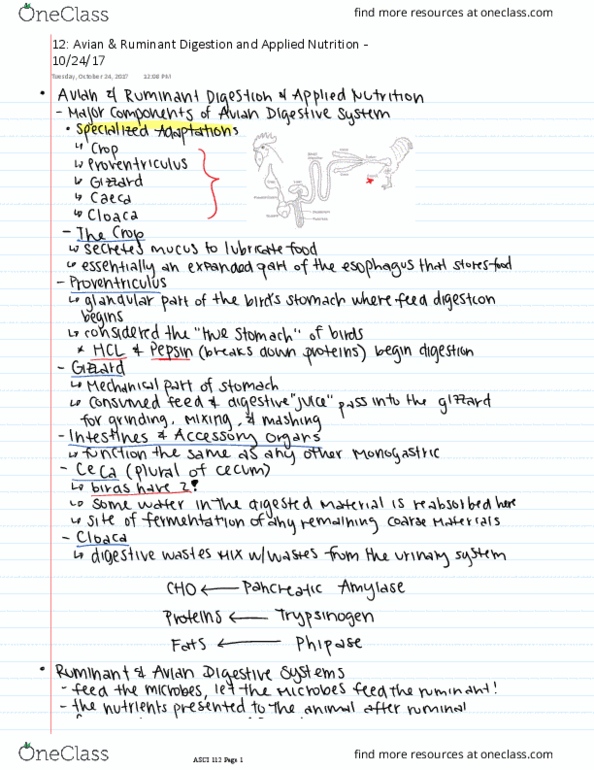 OneClass
find more resources at oneclass.com
12: Avian & Ruminant Digestion and Applied Nutrition -
10/24/17
Tuesday, October 24, 2017 12:08 PM
• Avian & Ruminant Digestion & Applied Nutrition
- Major Components of Avian Digestive System
• Specialized Adaptations
↳ Crop
↳ Proventriculus
↳ Gizzard
↳ Caeca
↳ Cloaca
- The Crop
↳ secretes mucus to lubricate food
↳ essentially an expanded part of the esophagus that stores food
- Proventriculus
↳ glandular part of the bird's stomach where feed digestion
begins
↳ considered the "true stomach" of birds
* HCL & Pepsin (breaks down proteins) begin digestion
- Gizzard
↳ Mechanical part of stomach
↳ consumed feed & digestive "juice" pass into the gizzard
for grinding, mixing, & mashing
- Intestines & Accessory organs
↳ function the same as any other monogastric
- Ceca (plural of cecum)
↳ birds have 2!
↳ some water in the digested material is reabsorbed here
↳ site of fermentation of any remaining coarse materials
- Cloaca
↳ digestive wastes mix w/wastes from the urinary system
CHO ← Pancreatic Amylase
Proteins ← Trypsinogen
Fats ← Phipase
• Ruminant & Avian Digestive Systems
- feed the microbes, let the microbes feed the ruminant!
- the nutrients presented to the animal after ruminal
ASCI 112 Page 1
OneClass
find more resources at oneclass.com